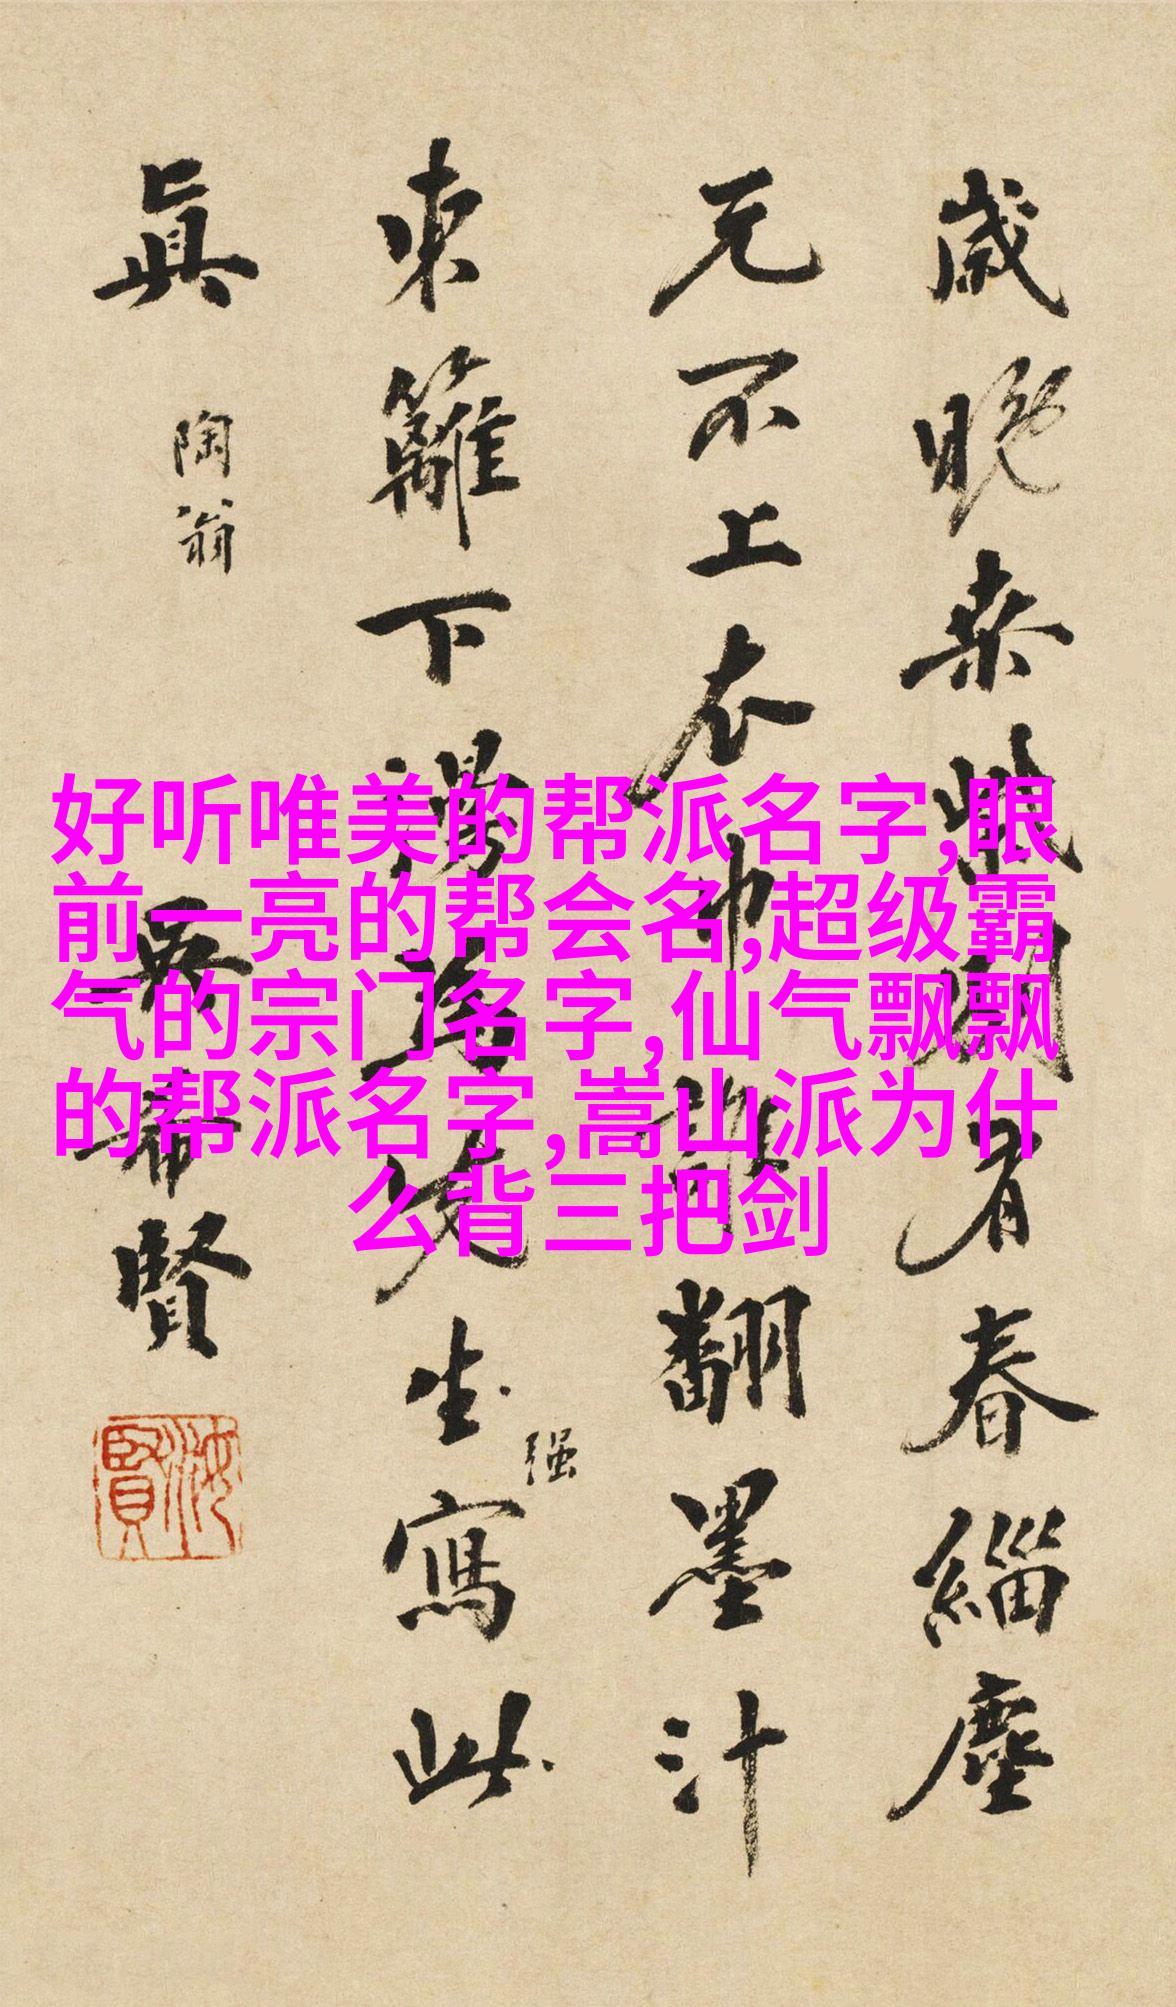 歲晚春緇塵
元不上衣巾誰翻墨汁
東籬下為先生寫此
强
眞
陶翁
吳希賢
汝賢
好听唯美的帮派名字,眼
前一亮的帮会名,超级霸
气的宗门名字,仙气飘飘
的帮派名字,嵩山派为什
么背三把剑